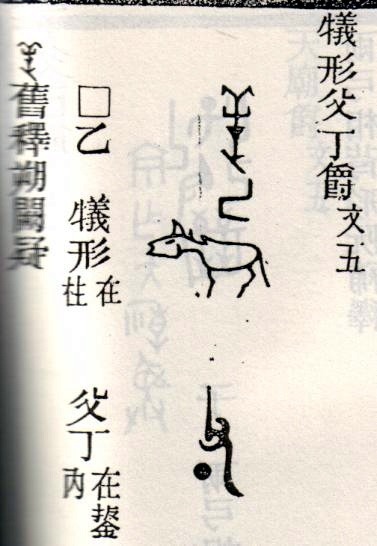 犧形父丁爵 文五
□乙 犧形 在柱 父丁 在鋬內
舊釋朔闕疑